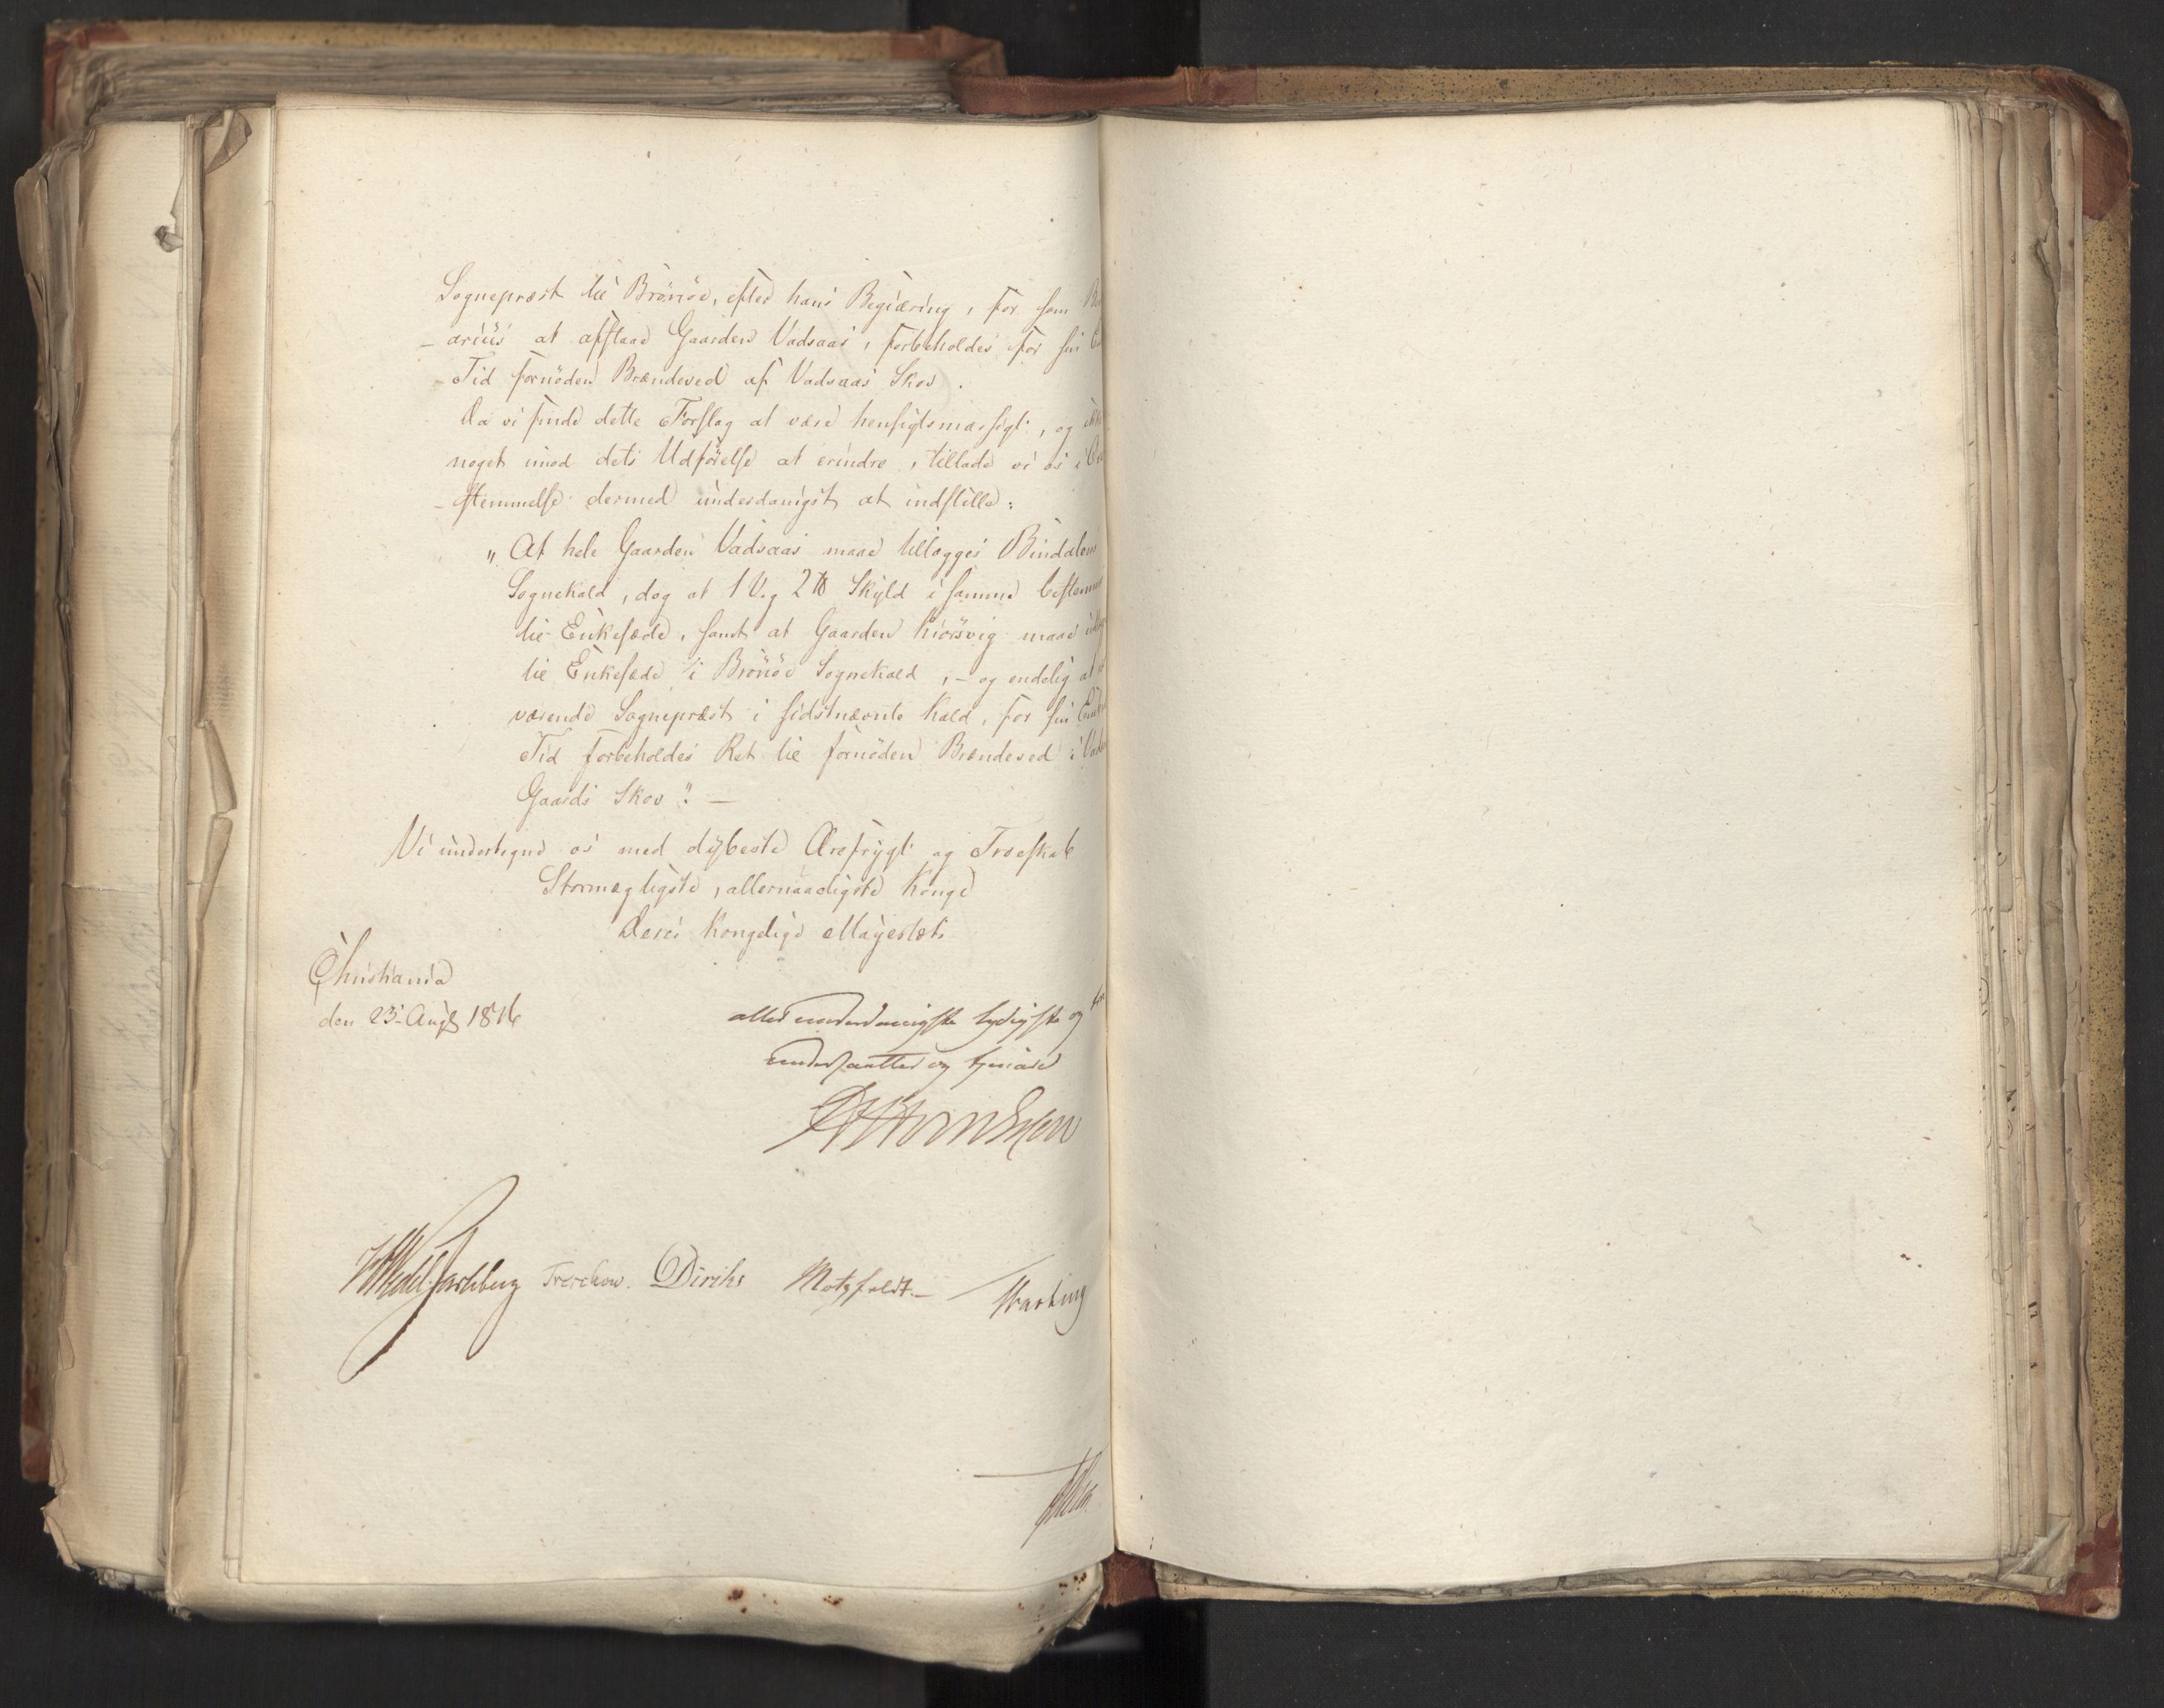 Sognepræst til Brönöe, efter hans Begjæring, for som
-arius at afstaae Gaarden Vadsaas, forbeholdes for sin
-Tid fornöden Brændeved af Vadsaas Skov.
Da vi finde dette Forslag at være hensigtsmæssigt, og ikke
noget imod dets Udförelse at erindre, tillade vi os i
-stemmelse dermed underdanigst at indstille:
„At hele Gaarden Vadsaas maae tillægges Bindalens
Sognekald, dog at 1 Vog 2 ℔ Skyld i samme bestemmes
til Enkesæde, samt at Gaarden Kiörsvig maae
til Enkesæde i Brönöe Sognekald, - og endelig at
værende Sognepræst i sidstnævnte Kald, for sin
Tid forbeholdes Ret til fornöden Brændeved i
Gaards Skov". —
Vi undertegne os med dybeste Ærefrygt og Troeskab
Stormægtigste, allernaadigste Konge
Deres Kongelige Majestæts
Christiania
den 23 Augt 1816
allerunderdanigste lydigste og
undersaatter og tjenere
Wedel Jarlsberg Treschow. Diriks Motzfeldt.